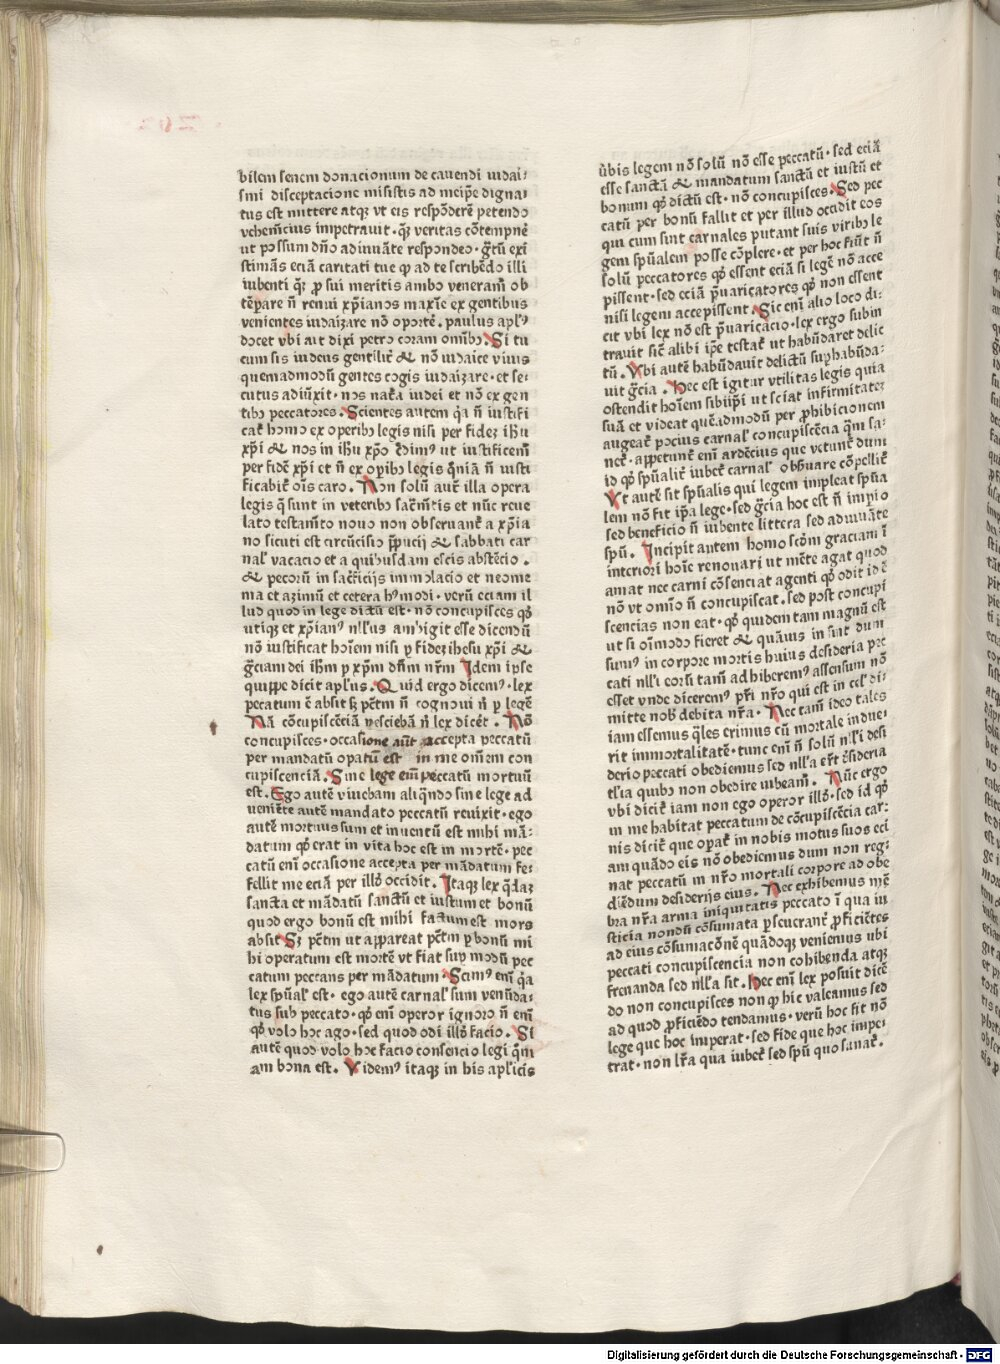 bilem senem donacionum de cauendi iudai⸗
smi disceptacione misistis ad meip̄e digna⸗
tus est mittere atqꝫ vt eis respōderē petendo
vehemēcius impetrauit · qꝫ veritas cōtempnē
ut possum dño adiuuāte respondeo · gr̄tū exi
stimās eciā caritati tue ꝙ ad te scribēdo illi
iubenti qꝫ ꝓ sui meritis ambo veneram̄ ob
tēpare ñ renui xp̄ianos maxīe ex gentibus
venientes iudaizare nō oportē . paulus aplꝰ
docet vbi ait dixi petro coram omībꝰ. Si tu
cum sis iudeus gentilit̄ & nō iudaice viuis
quemadmodū gentes cogis iudaizare · et se⸗
cutus adiūxit · nos nat̄a iudei et nō ex gen
tibꝰ peccatores . Scientes autem q̄a ñ iustifi
cat̄ homo ex operibꝰ legis nisi per fideꝫ ihū
xp̄i & nos in ihū xp̄o c̄dimꝰ ut iustificem̄
per fidē xp̄i et ñ ex oꝑibꝰ legis q̄niā ñ iusti
ficabit̄ oīs caro . Non solū aut̄ illa opera
legis q̄ sunt in veteribꝰ sac̄m̄tis et nūc reue
lato testam̄to nouo non obseruant̄ a xp̄ia
no sicuti est circūcisio p̄pucij & sabbati car
nalꝰ vacacio et a quibusdam escis abstēcio .
& pecorū in sac̄ficijs immolacio et neome
nia et azimū et cetera hꝰmodi · verū eciam il
lud quod in lege dictū est · nō concupisces qd̓
utiqꝫ et xp̄ianꝰ nllꝰus ambigit esse dicendū
nō iustificat hoīem nisi ꝑ fideꝫ ihesu xp̄i &
gr̄ciam dei ihm̄ ꝑ xp̄m dn̄m nr̄m Idem ipse
quippe dicit aplꝰus . Quid ergo dicemꝰ · lex
peccatum ē absit sꝫ pctm̄ ñ cognoui ñ ꝑ legē
Nā cōcupiscēciā nesciebā ñ lex dicēt . Nō
concupisces · occasione aūt accepta peccatū
per mandatū opatū est in me omēm con
cupiscenciā . Sine lege enī peccatū mortuū
est . Ego autē viuebam aliq̄ndo sine lege ad
ueniēte autē mandato peccatū reuixit · ego
autē mortuus sum et inuentū est mihi mā⸗
datum qd̓ erat in vita hoc est in mortē · pec
catū enī occasione accepta per mādatum fe⸗
fellit me eciā per illd̓ occidit . Itaqꝫ lex q̄daꝫ
sancta et mādatū sanctū et iustum et bonū
quod ergo bonū est mihi factum est mors
absit Sꝫ pctm̄ ut appareat pctm̄ ꝑ bonū mi
hi operatum est mortē vt fiat suꝑ modū pec
catum peccans per mādatum · Scimꝰ enī q̄a
lex spūalꝰ est · ego autē carnalꝰ sum venūda⸗
tus sub peccato · qd̓ enī operor ignoro ñ enī
qd̓ volo hoc ago · sed quod odi illd̓ facio . Si
autē quod volo hoc facio consencio legi q̄m
am bona est . Videmꝰ itaqꝫ in his aplꝰicis
ūbis legem nō solū nō esse peccatū · sed eciā
esse sanctā & mandatum sanctū et iustū et
bonum qd̓ dictū est · nō concupisces . Sed pec
catū per bonū fallit et per illud occidit eos
qui cum sint carnales putant suis viribꝰ le
gem spūalem posse cōplere · et per hoc fiūt ñ
solū peccatores qd̓ essent eciā si legē nō acce
pissent · sed eciā p̄uaricatores qd̓ non essent
nisi legem accepissent . Sic enī alio loco di⸗
cit vbi lex nō est p̄uaricacio · lex ergo subin
trauit sic̄ alibi ip̄e testat̄ ut habūdaret delic
tū . Vbi autē habūdauit delictū suꝑhabūda⸗
uit gr̄cia . Hec est igitur vtilitas legis quia
ostendit hoīem sibiip̄i ut sciat infirmitateꝫ
suā et videat quēadmodū per ꝓhibicionem
augeat̄ pocius carnalꝰ concupiscēcia q̄m sa⸗
net̄ · appetunt̄ enī ardēcius que vetant̄ dum
id qd̓ spūalit̄ iubet̄ carnalꝰ obsͥuare cōpellit̄
Vt autē sit spūalis qui legem impleat spūa
lem nō fit ip̄a lege · sed gr̄cia hoc est ñ impio
sed beneficio ñ iubente littera sed adiuuāte
spū . Incipit autem homo scdm̄ graciam ī
interiori hoīe renouari ut mēte agat quod
amat nec carni cōsenciat agenti qd̓ odit id ē
nō vt omīo ñ concupiscat . sed post concupi
scencias non eat · qd̓ quidem tam magnū est
ut si oīmodo fieret & quāuis in sint dum
sumꝰ in corpore mortis huius desideria pec
cati nllꝰi eorū tam̄ adhiberemꝰ assensum nō
esset vnde diceremꝰ pr̄i nr̄o qui est in celꝰ di⸗
mitte nobꝰ debita nr̄a . Nec tam̄ ideo tales
iam essemus q̄les erimus cū mortale indue⸗
rit immortalitatē · tunc enī ñ solū nllꝰi desi
derio peccati obediemus sed nllꝰa er̄t d̓sideria
tlꝰia quibꝰ non obedire iubeam̄ . Nūc ergo
vbi dicit̄ iam non ego operor illd̓ · sed id qd̓
in me habitat peccatum de cōcupiscēcia car⸗
nis dicit̄ que opat̄ in nobis motus suos eci
am quādo eis nō obedimus dum non reg⸗
nat peccatū in nr̄o mortali corpore ad obe
diēdum desiderijs eius . Nec exhibemus mē
bra nr̄a arma iniquitatis peccato ī qua iu
sticia nondū cōsumata ꝑseuerant̄ ꝓficiētes
ad eius cōsumacōnē quādoqꝫ veniemus ubi
peccati concupiscencia non cohibenda atqꝫ
frenanda sed nllꝰa sit . Hec enī lex posuit dicē
do non concupisces non ꝙ hic valeamus sed
ad quod ꝓficiēdo tendamus · verū hoc fit nō
lege que hoc imperat · sed fide que hoc impe⸗
trat · non lr̄a qua iubet̄ sed spū quo sanat̄ .
Digitalisierung gefördert durch die Deutsche Forschungsgemeinschaft - DFG